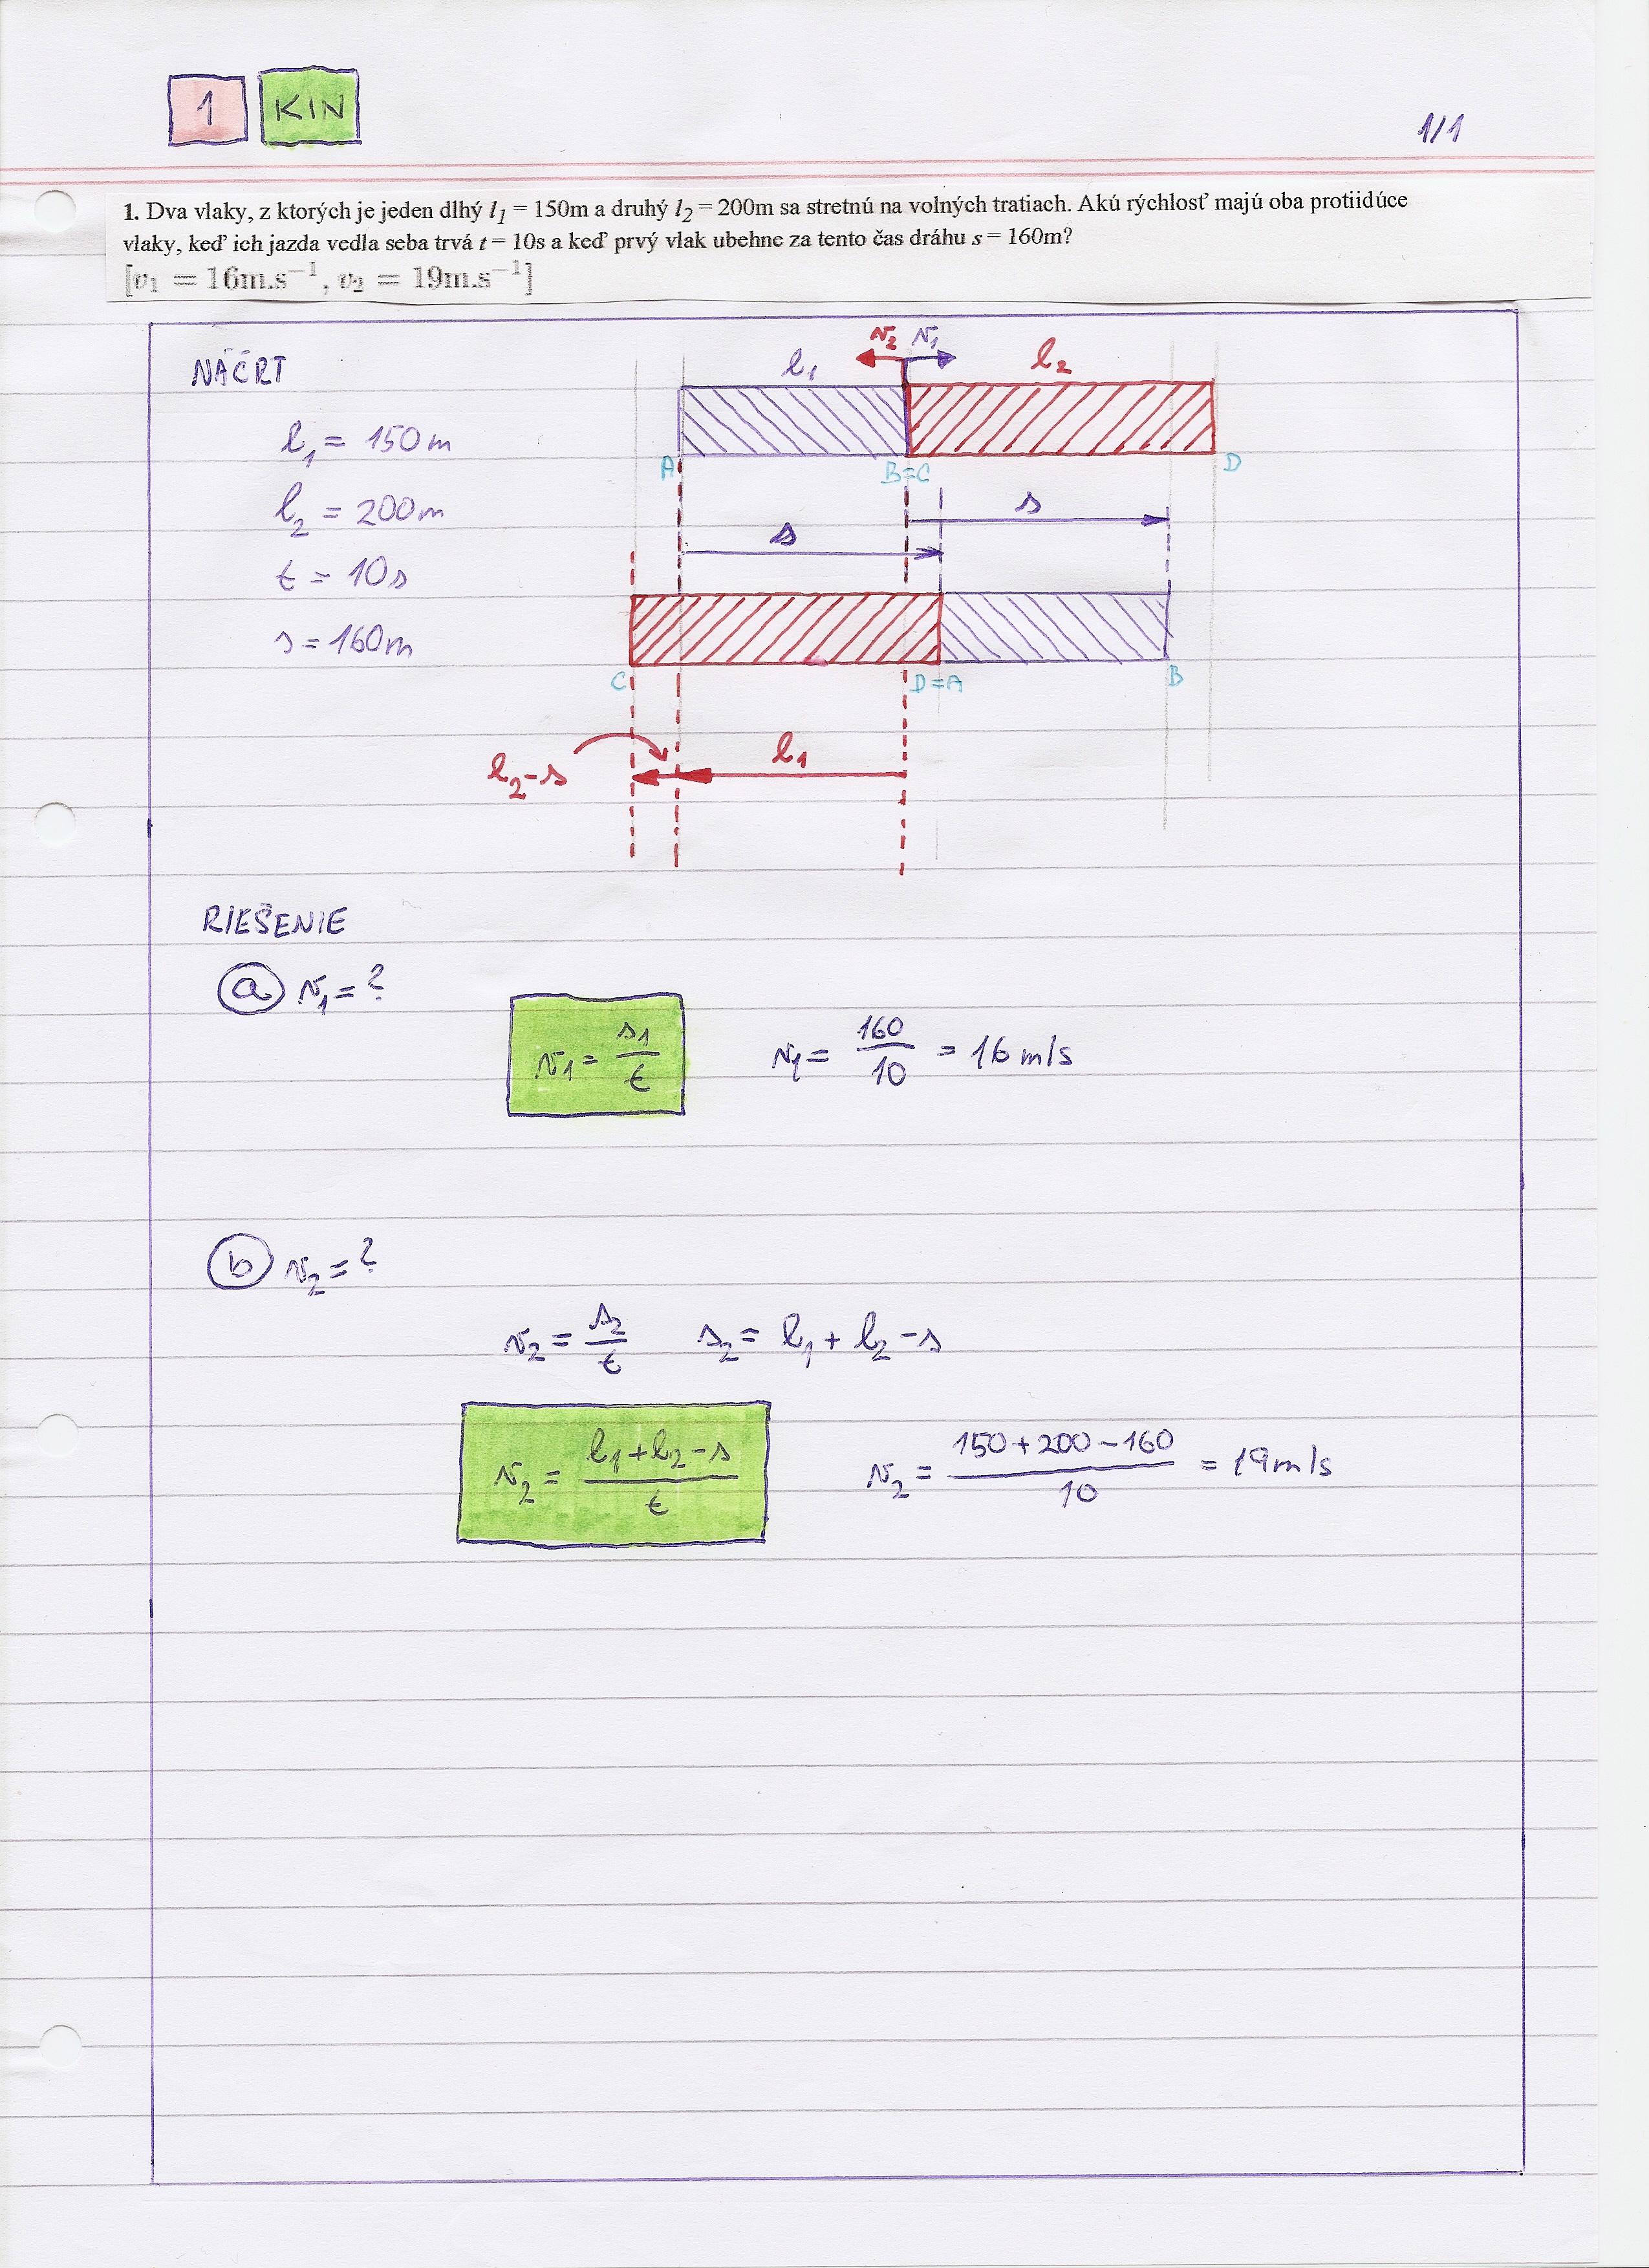 1 KIN
1/1
1. Dva vlaky, z ktorých je jeden dlhý l1 = 150m a druhý l2 = 200m sa stretnú na volných tratiach. Akú rýchlosť majú oba protiidúce
vlaky, keď ich jazda vedla seba trvá t = 10s a keď prvý vlak ubehne za tento čas dráhu s = 160m?
[v1 = 16m.s⁻¹, v2 = 19m.s⁻¹]
NÁČRT
v2 v1
l1 l2
l1 = 150m
A B=C D
l2 = 200m
s
s
t = 10s
s = 160m
C D=A B
l2-s l1
RIEŠENIE
a v1 = ?
v1 = s1/t v1 = 160/10 = 16 m/s
b v2 = ?
v2 = s2/t s2 = l1 + l2 - s
v2 = (l1 + l2 - s)/t v2 = (150+200-160)/10 = 19 m/s